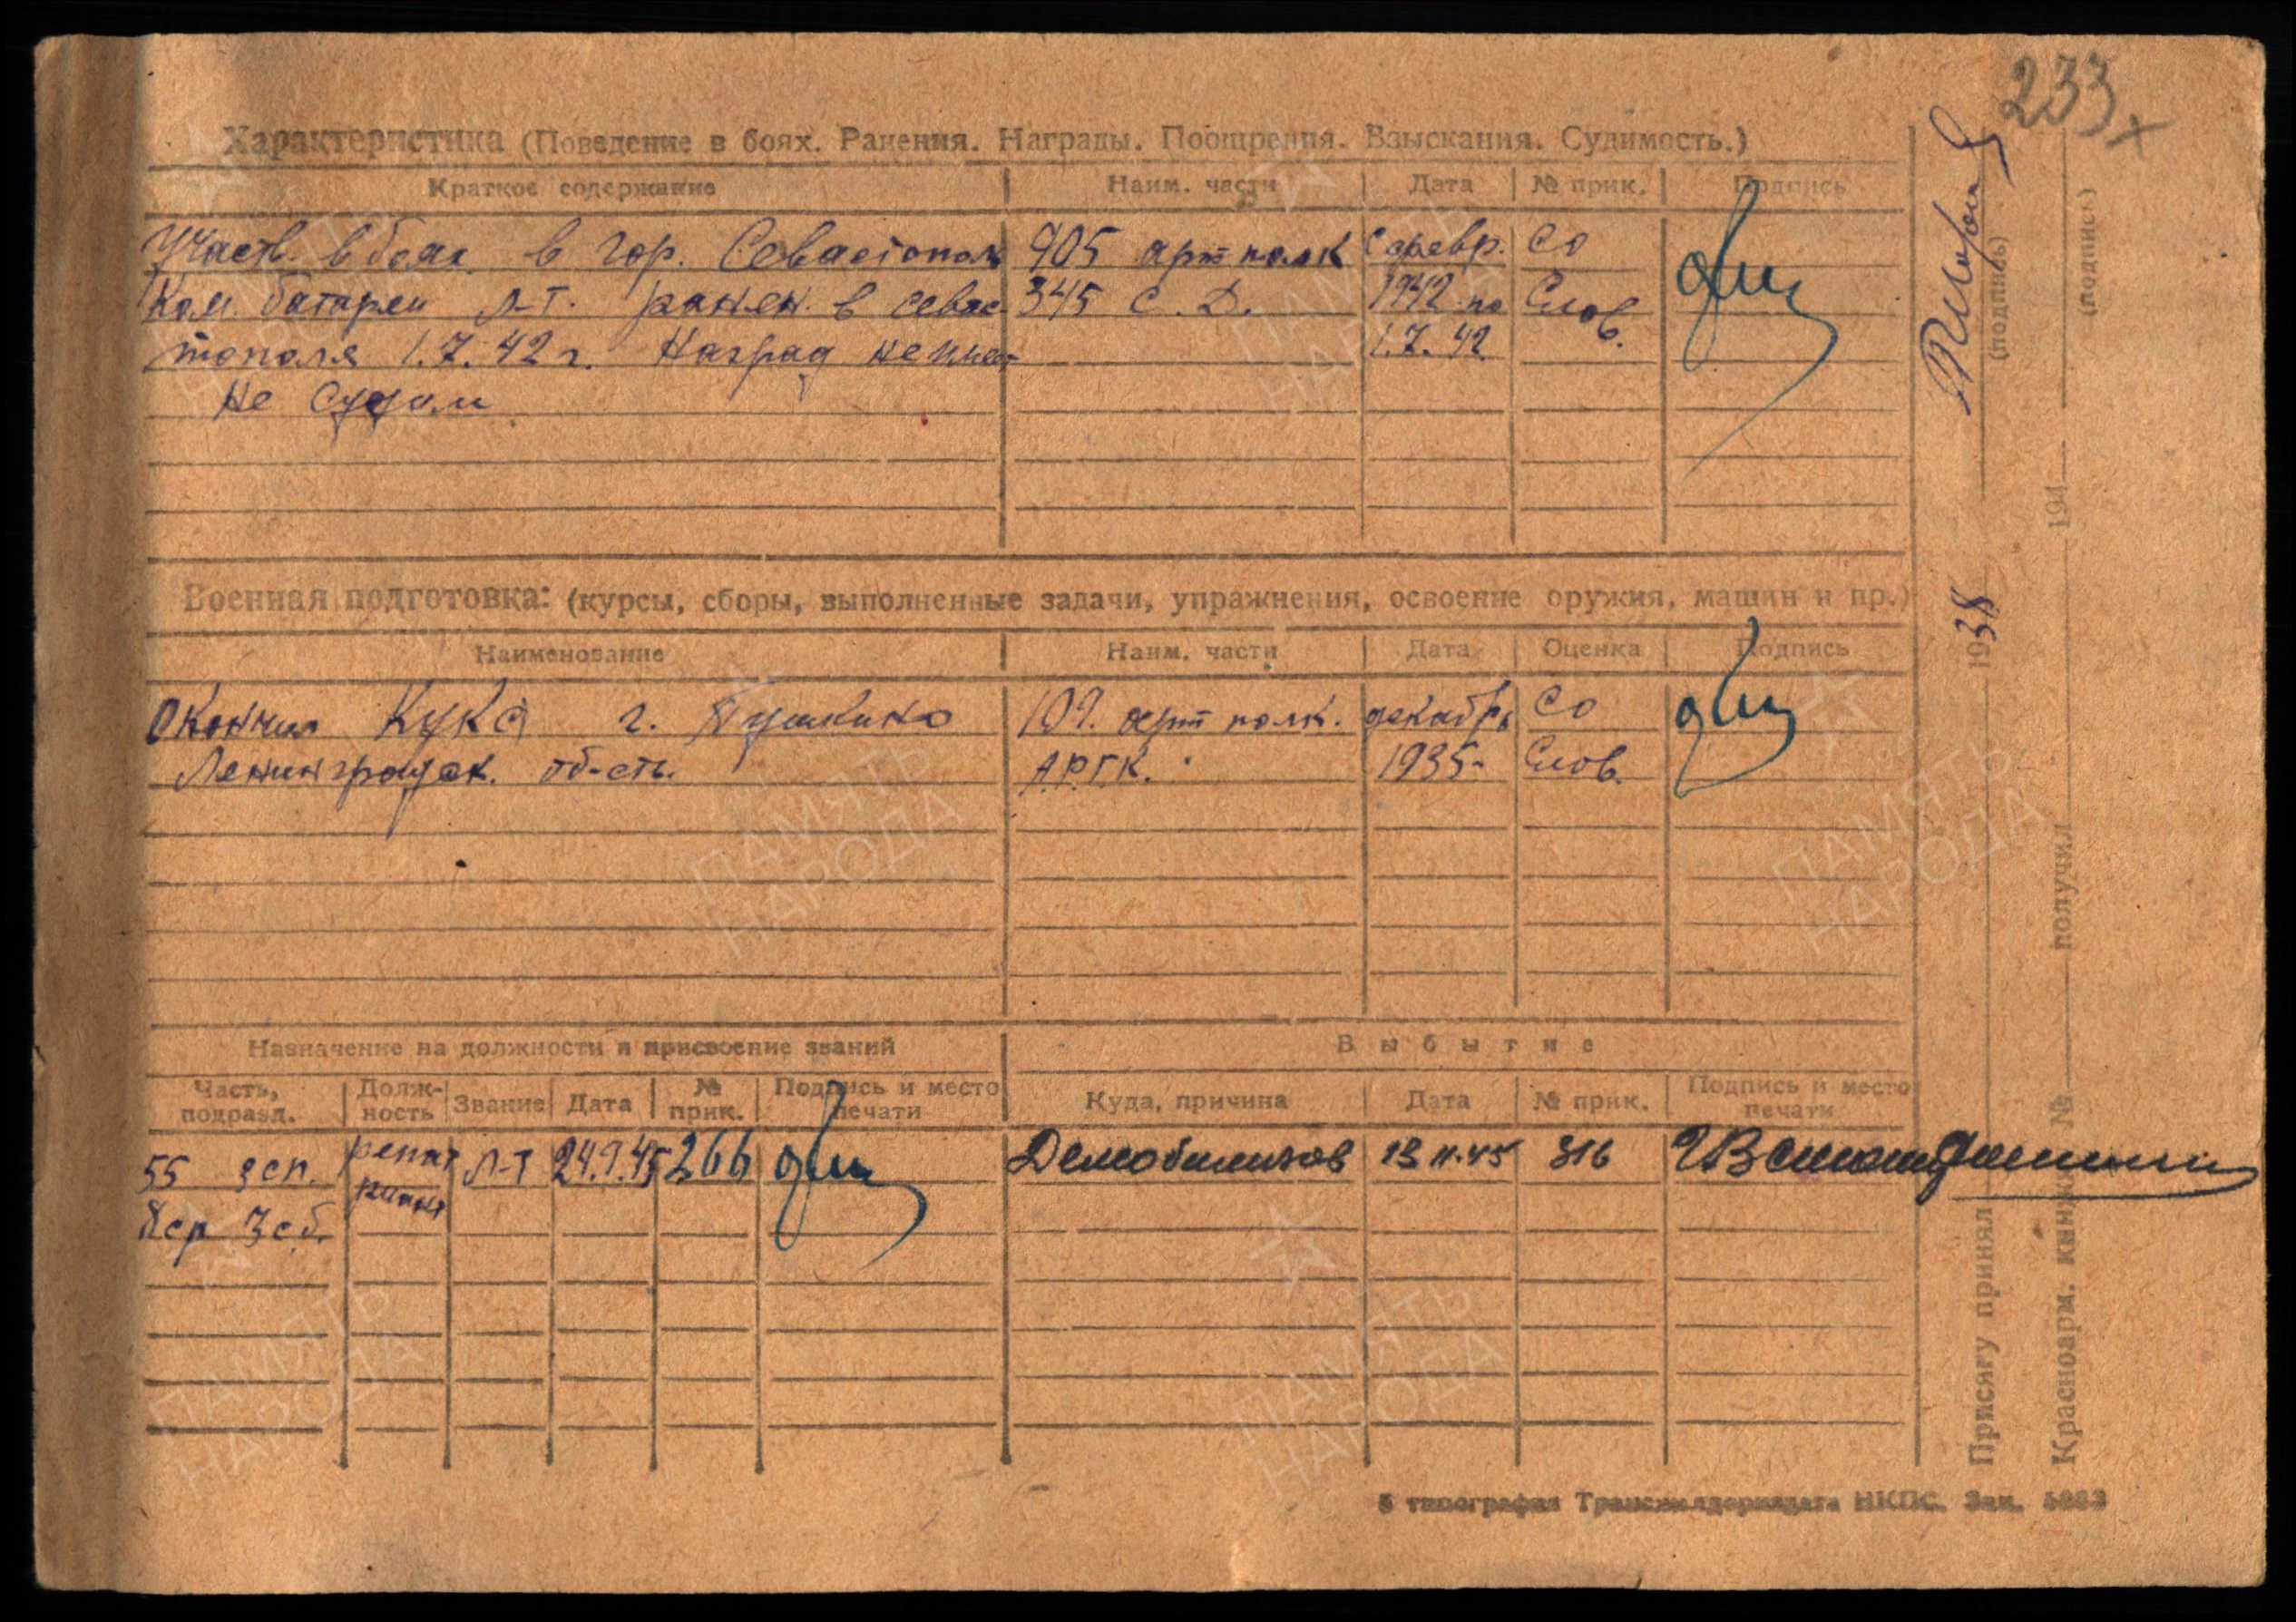 233 х
Характеристика (Поведение в боях. Ранения. Награды. Поощрения. Взыскания. Судимость.)
Краткое содержание Наим. части Дата № прик. Подпись
Участв. в боях в гор. Севастопол 905 арт полк С февр. Со
Ком. батареи Л-т. ранен. в Севас- 345 С. Д. 1942 по Слов.
тополя 1.7.42 г. Наград не имеет 1.7.42
Не судим
Военная подготовка: (курсы, сборы, выполненные задачи, упражнения, освоение оружия, машин и пр.)
Наименование Наим. части Дата Оценка Подпись
Окончил КУКС г. Пушкино 109. арт полк. декабрь Со
Ленинградск. об-сть. А.Р.Г.К. 1935- Слов.
Назначение на должности и присвоение званий Выбытие
Часть, подразд. Долж-ность Звание Дата № прик. Подпись и место печати Куда, причина Дата № прик. Подпись и место печати
55 зсп. репат Л-т 24.9.45 266 Демобилизов 13.11.45 316
8ср 3сб. риант
Присягу принял 1938 (подпись)
Краснoарм. книжку № получил 194 (подпись)
5 типография Трансжелдориздата НКПС. Зак.
ПАМЯТЬ
НАРОДА
ПАМЯТЬ
НАРОДА
ПАМЯТЬ
НАРОДА
ПАМЯТЬ
НАРОДА